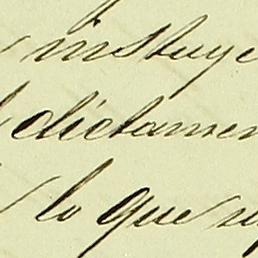 instuye
dictamen
lo que